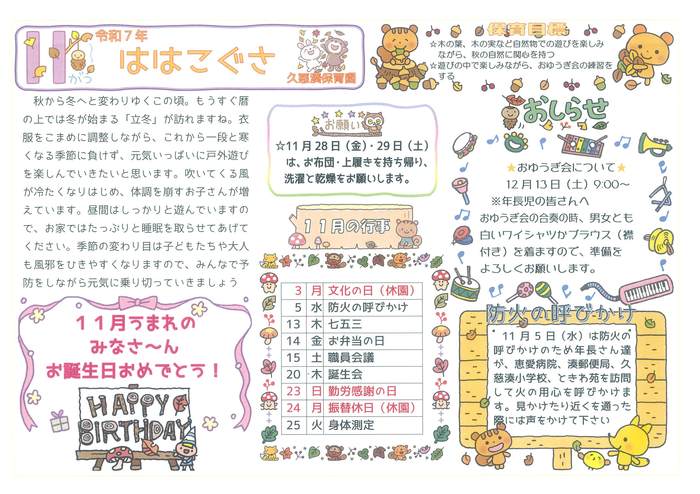 令和７年
11がつ
ははこぐさ
久慈湊保育園
秋から冬へと変わりゆくこの頃。もうすぐ暦
の上では冬が始まる「立冬」が訪れますね。衣
服をこまめに調整しながら、これから一段と寒
くなる季節に負けず、元気いっぱいに戸外遊び
を楽しんでいきたいと思います。吹いてくる風
が冷たくなりはじめ、体調を崩すお子さんが増
えています。昼間はしっかりと遊んでいますの
で、お家ではたっぷりと睡眠を取らせてあげて
ください。季節の変わり目は子どもたちや大人
も風邪をひきやすくなりますので、みんなで予
防をしながら元気に乗り切っていきましょう
１１月うまれの
みなさ～ん
お誕生日おめでとう！
HAPPY
BIRTHDAY
お願い
☆11月28日（金）・29日（土）
は、お布団・上履きを持ち帰り、
洗濯と乾燥をお願いします。
１１月の行事
3 月 文化の日（休園）
5 水 防火の呼びかけ
13 木 七五三
14 金 お弁当の日
15 土 職員会議
20 木 誕生会
23 日 勤労感謝の日
24 月 振替休日（休園）
25 火 身体測定
保育目標
☆木の葉、木の実など自然物での遊びを楽しみ
ながら、秋の自然に関心を持つ
☆遊びの中で楽しみながら、おゆうぎ会の練習を
する
おしらせ
★おゆうぎ会について★
12月13日（土）9:00～
※年長児の皆さんへ
おゆうぎ会の合奏の時、男女とも
白いワイシャツかブラウス（襟
付き）を着ますので、準備を
よろしくお願いします。
防火の呼びかけ
11月5日（水）は防火の
呼びかけのため年長さん達
が、恵愛病院、湊郵便局、久
慈湊小学校、ときわ苑を訪問
して火の用心を呼びかけま
す。見かけたり近くを通った
際には声をかけて下さい